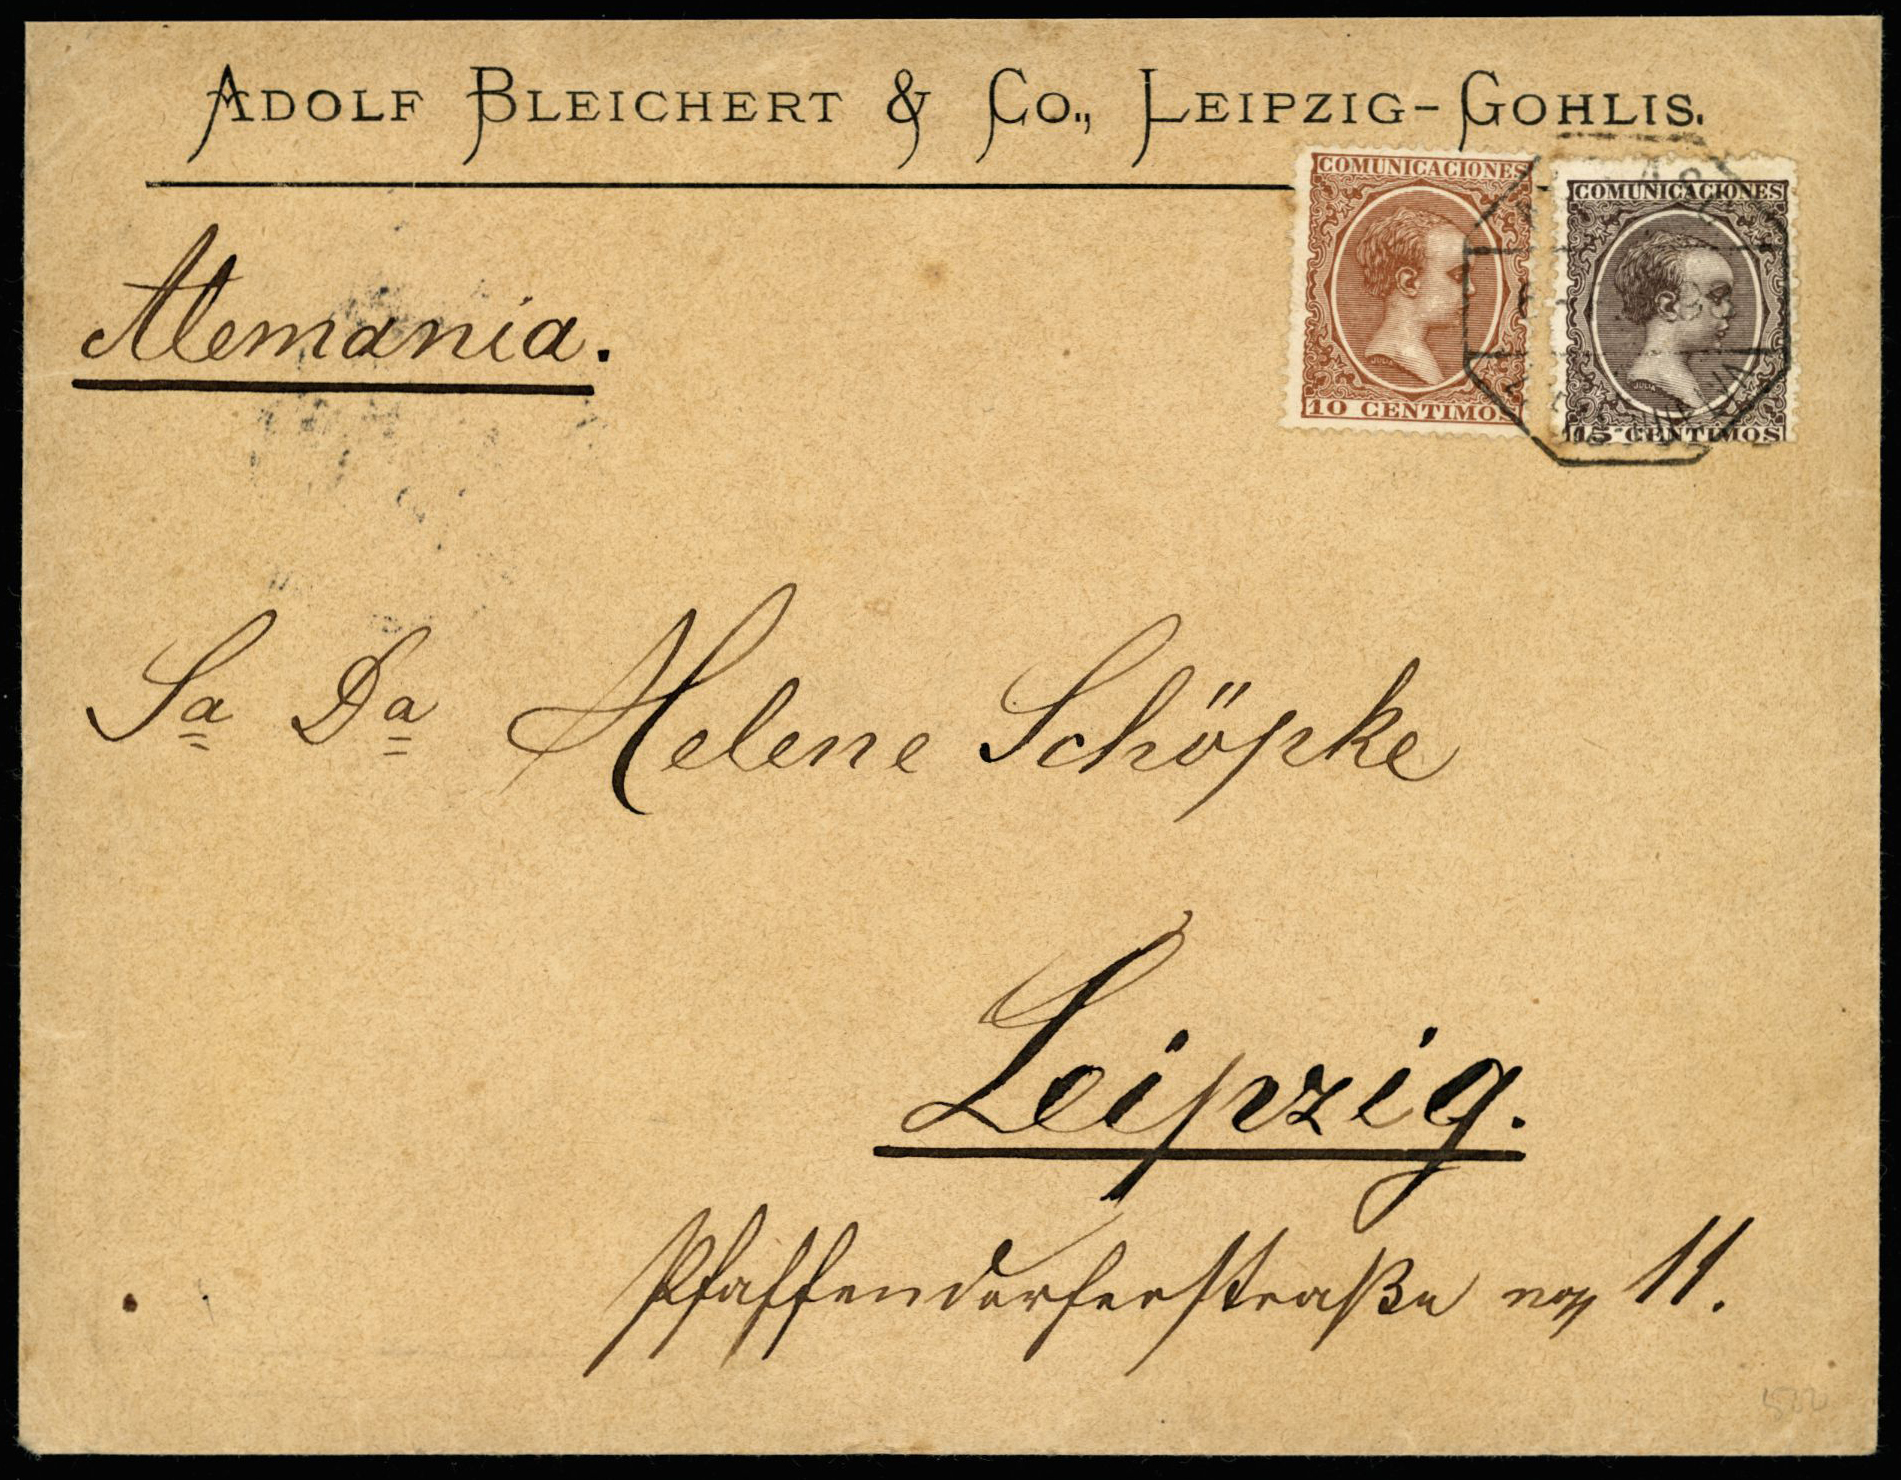 ADOLF BLEICHERT & CO., LEIPZIG-GOHLIS.
COMUNICACIONES
10 CENTIMOS
COMUNICACIONES
JULIA
15 CENTIMOS
Alemania.
Sa Da Helene Schöpke
Leipzig.
Pfaffendorferstraße 11.